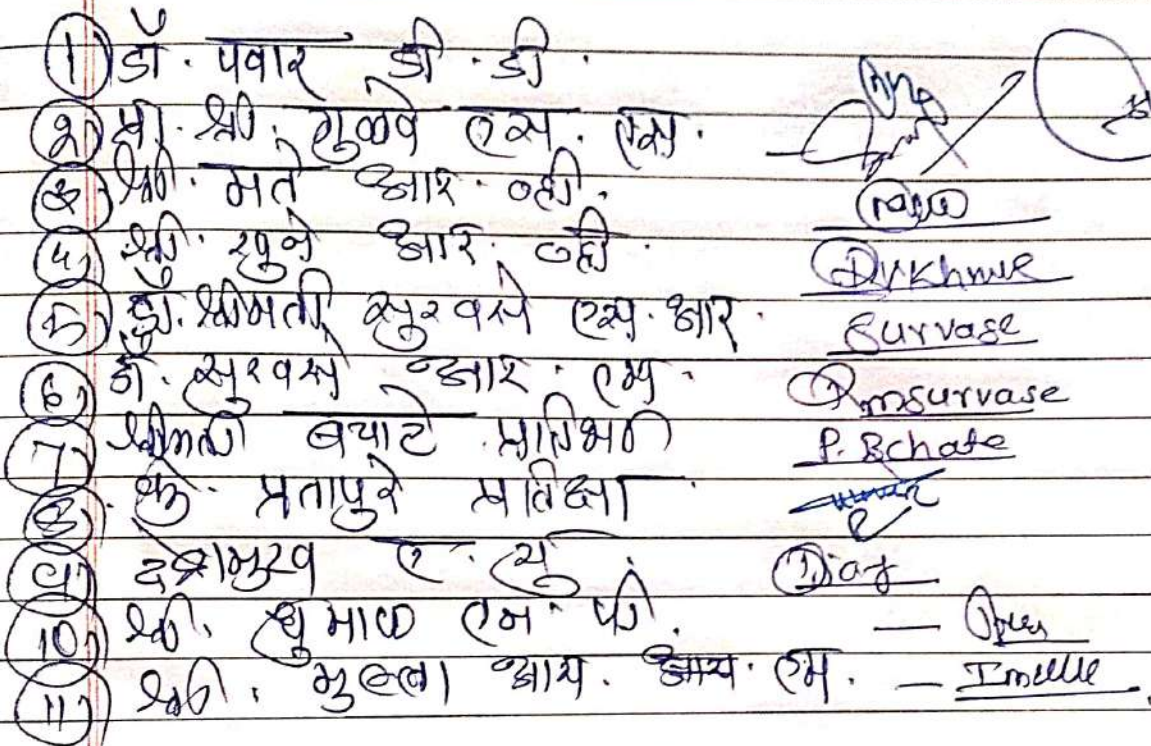 ① डॉ. पवार डी. डी.
② प्रा. श्री. गुळवे एस. एस.
③ श्री. मते आर. व्ही.
④ श्री. खुने आर. व्ही. Dvkhune
⑤ डॉ. श्रीमती सुरवसे एस. आर. Survase
⑥ डॉ. सुरवसे आर. एम. Rmsurvase
⑦ श्रीमती बचाटे प्रतिभा P. Bchate
⑧ कु. प्रतापुरे प्रतिक्षा
⑨ देशमुख ए. यु.
⑩ श्री. धुमाळ एम. पी.
⑪ श्री. मुल्ला आय. आय. एम.